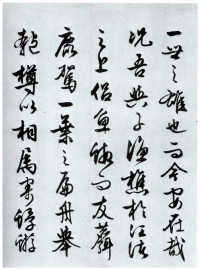 一世之雄也而今安在哉
況吾與子漁樵於江渚
之上侶魚蝦而友麋
鹿駕一葉之扁舟舉
匏樽以相屬寄蜉蝣